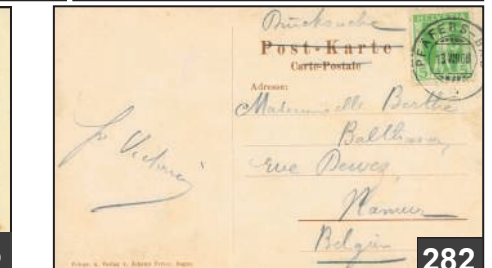 Drucksache
Post-Karte
Carte-Postale
HELVETIA
5
PFÄFERS-BAD
Adresse:
Mademoiselle Berthe
Balthasar,
rue Dewez,
Namur
Belgien
282